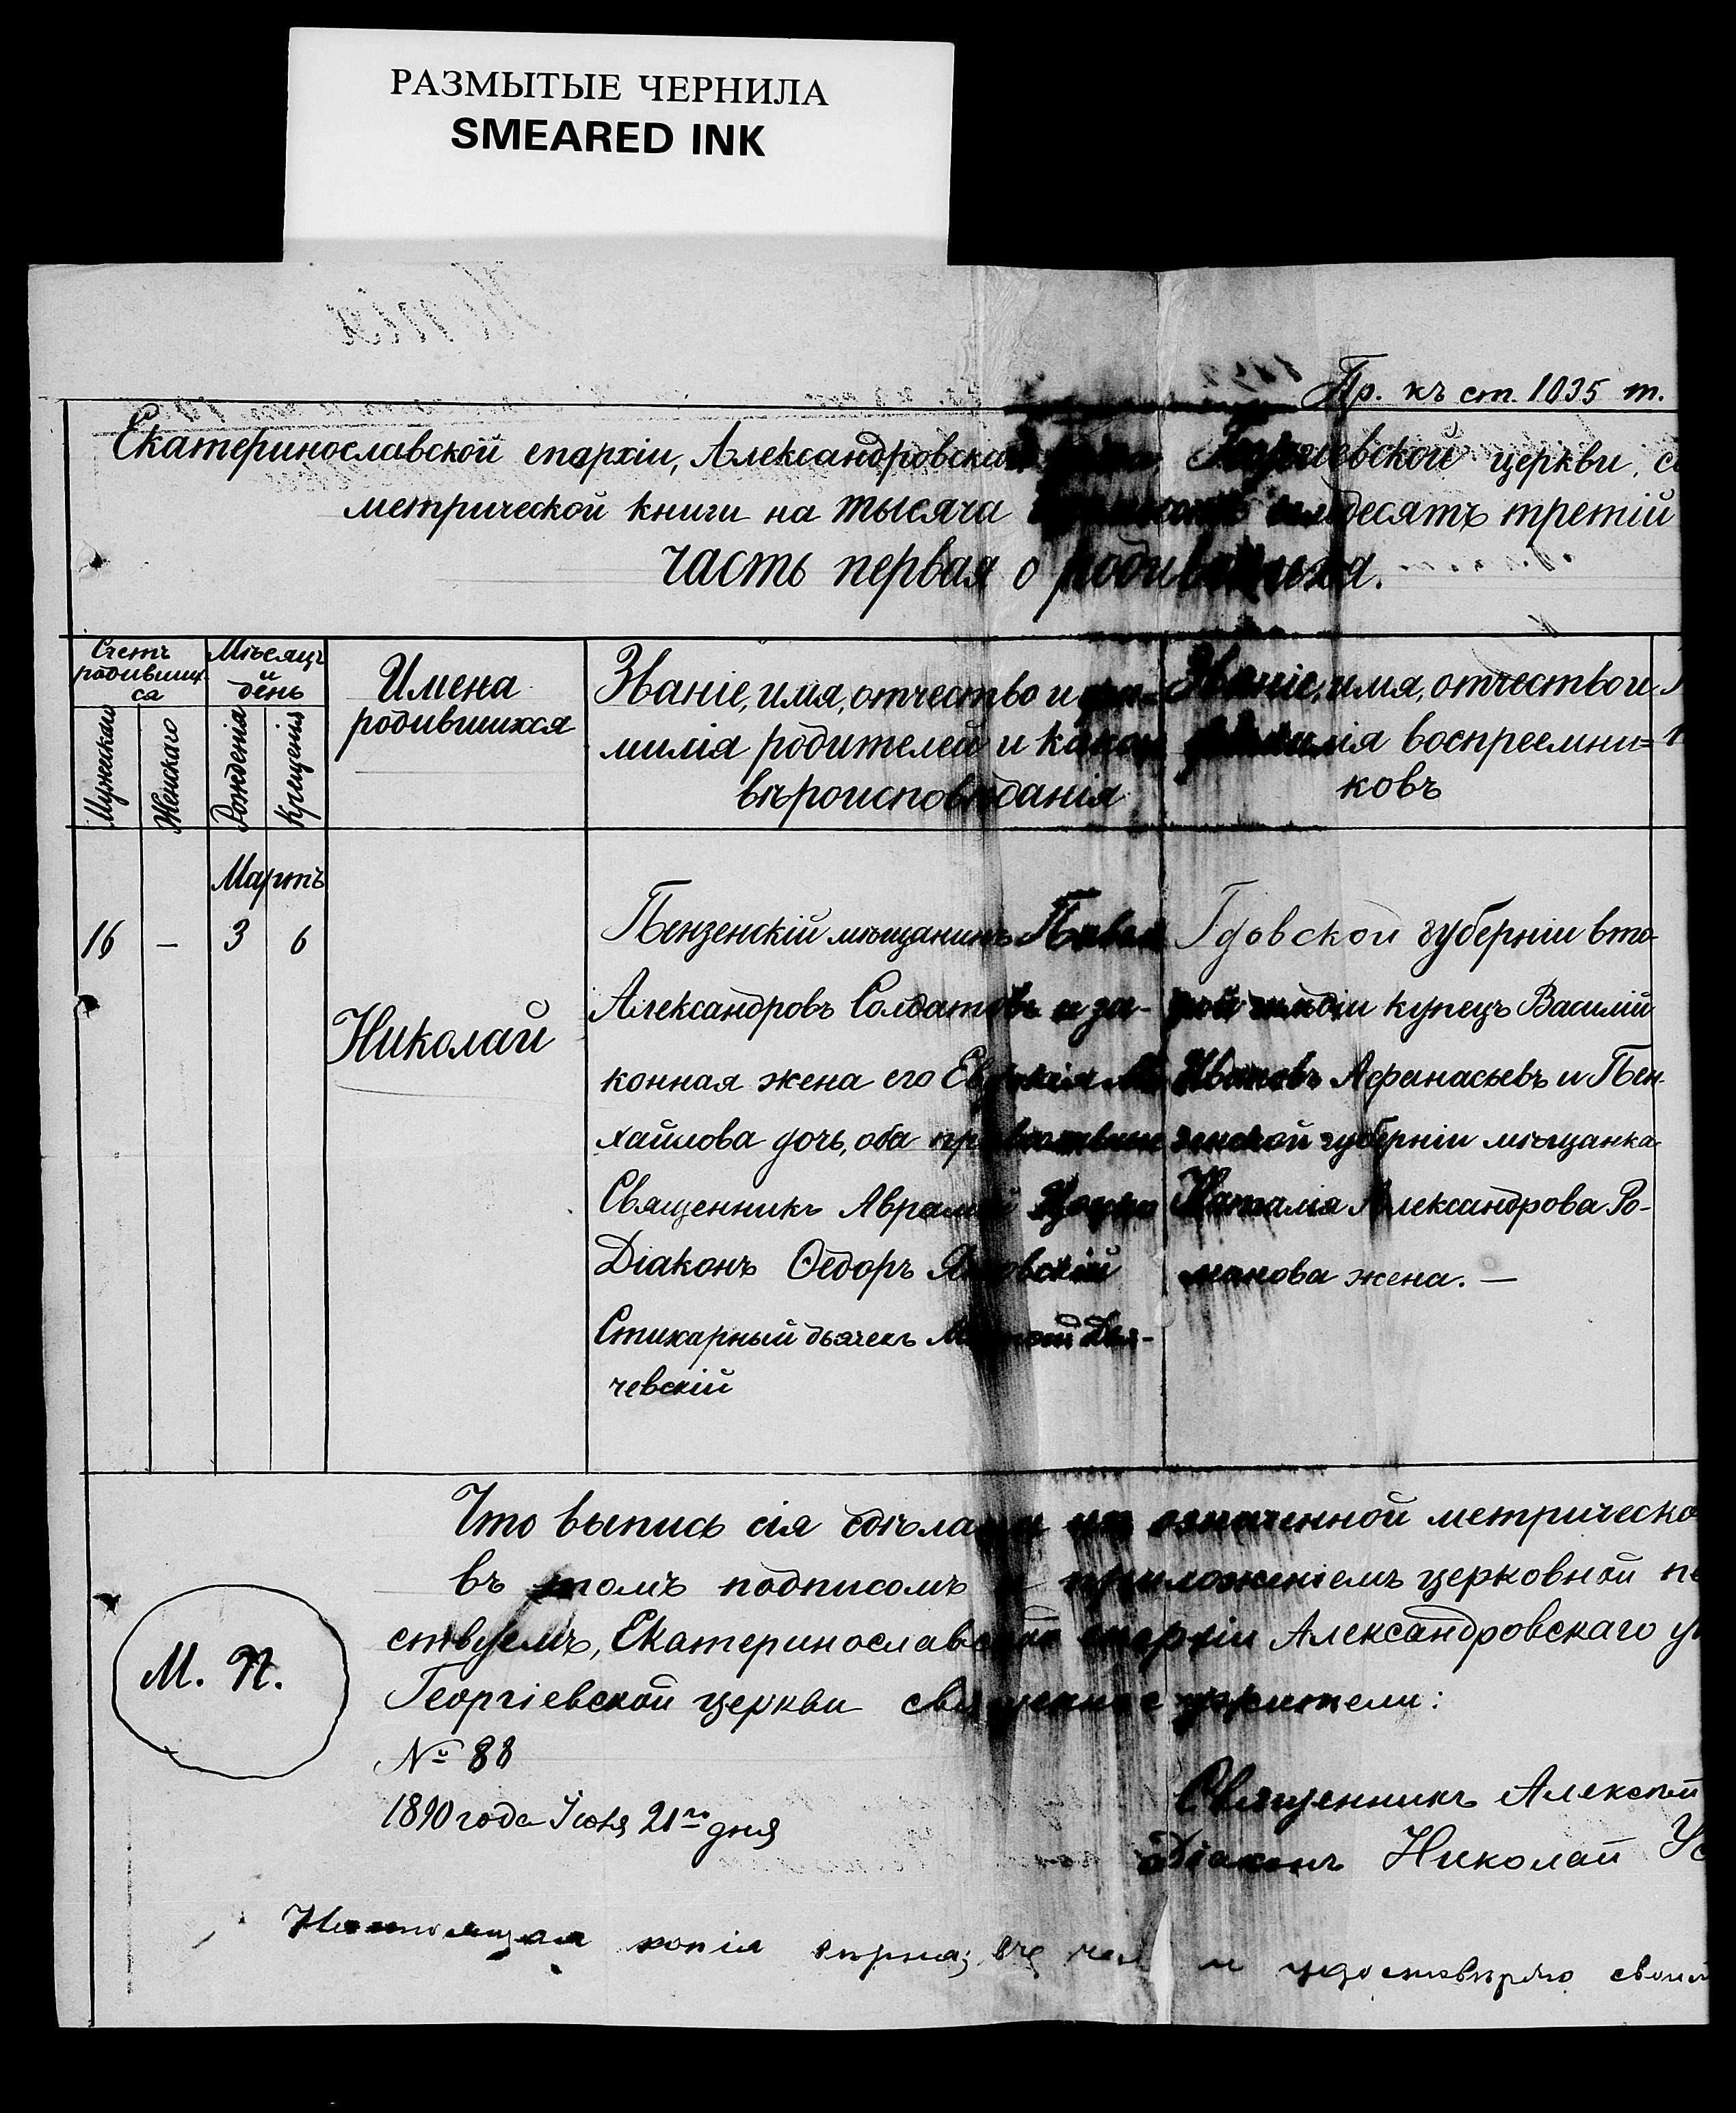 РАЗМЫТЫЕ ЧЕРНИЛА
SMEARED INK
Пр. къ ст. 1035 т.
Екатеринославской епархіи, Александровска Георгіевской церкви,
метрической книги на тысяча десятъ третій
часть первая о родившихся.
Счетъ родившихся
Мужескаго
Женскаго
Мѣсяцъ и день
Рожденія
Крещенія
Имена
родившихся
Званіе, имя, отчество и фа-
милія родителей и какого
вѣроисповѣданія
Званіе, имя, отчество и
фамилія воспреемни=
ковъ
Мартъ
16 — 3 6
Николай
Пензенскій мѣщанинъ Павел
Александровъ Солдатовъ и за-
конная жена его Ми
хайлова дочь, оба
Священникъ Аврамій
Діаконъ Ѳедоръ
Стихарный дьячекъ
чевскій
Гдовской губерніи вто-
рой гильдіи купецъ Василій
Ивановъ Афанасьевъ и Пен-
зенской губерніи мѣщанка
Наталія Александрова Ро-
манова жена. —
Что выпись сія сдѣлана изъ означенной метрическо
въ томъ подписомъ приложеніемъ церковной пе
ствуемъ, Екатеринославской епархіи Александровскаго у
Георгіевской церкви священно служители:
М. П.
№ 88
1890 года Іюня 21го дня
Священникъ Алексѣй
Діаконъ Николай Ус
Настоящая копія вѣрна; въ чем и удостовѣряю своим